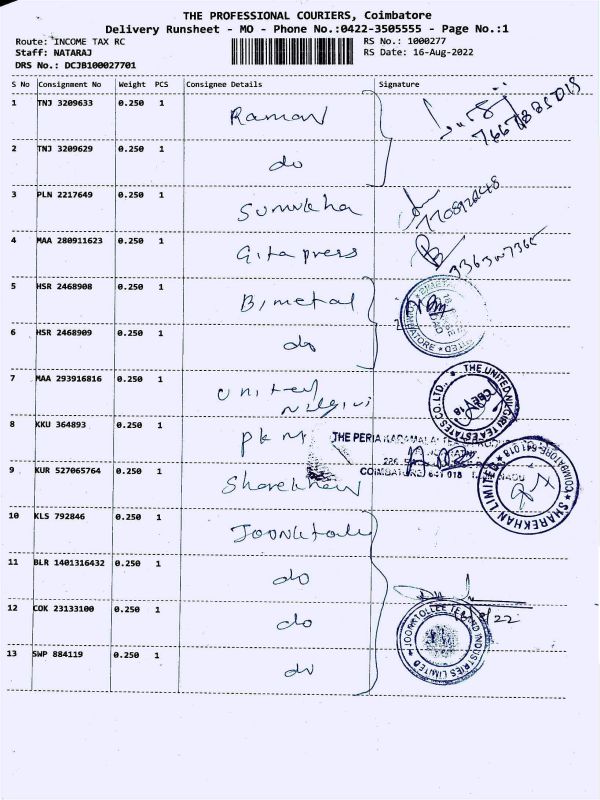 THE PROFESSIONAL COURIERS, Coimbatore
Delivery Runsheet - MO - Phone No.:0422-3505555 - Page No.:1
Route: INCOME TAX RC
RS No.: 1000277
Staff: NATARAJ
RS Date: 16-Aug-2022
DRS No.: DCJB100027701
S No Consignment No Weight PCS Consignee Details Signature
1 TNJ 3209633 0.250 1 Raman
2 TNJ 3209629 0.250 1 do
3 PLN 2217649 0.250 1 Sumukha
4 MAA 280911623 0.250 1 Gita press
5 HSR 2468908 0.250 1 Bimetal
6 HSR 2468909 0.250 1 do
7 MAA 293916816 0.250 1 United Nilgiri
THE UNITED NILGIRI TEA ESTATES CO. LTD.,
8 KKU 364893 0.250 1
THE PERIA KARAMALAI TEA
COIMBATORE 641 018
9 KUR 527065764 0.250 1 Sharekhan
SHAREKHAN LIMITED COIMBATORE-641 018
10 KLS 792846 0.250 1
11 BLR 1401316432 0.250 1 do
12 COK 23133100 0.250 1 do
JOONKTOLLEE TEA AND INDUSTRIES LIMITED
13 SWP 884119 0.250 1 do